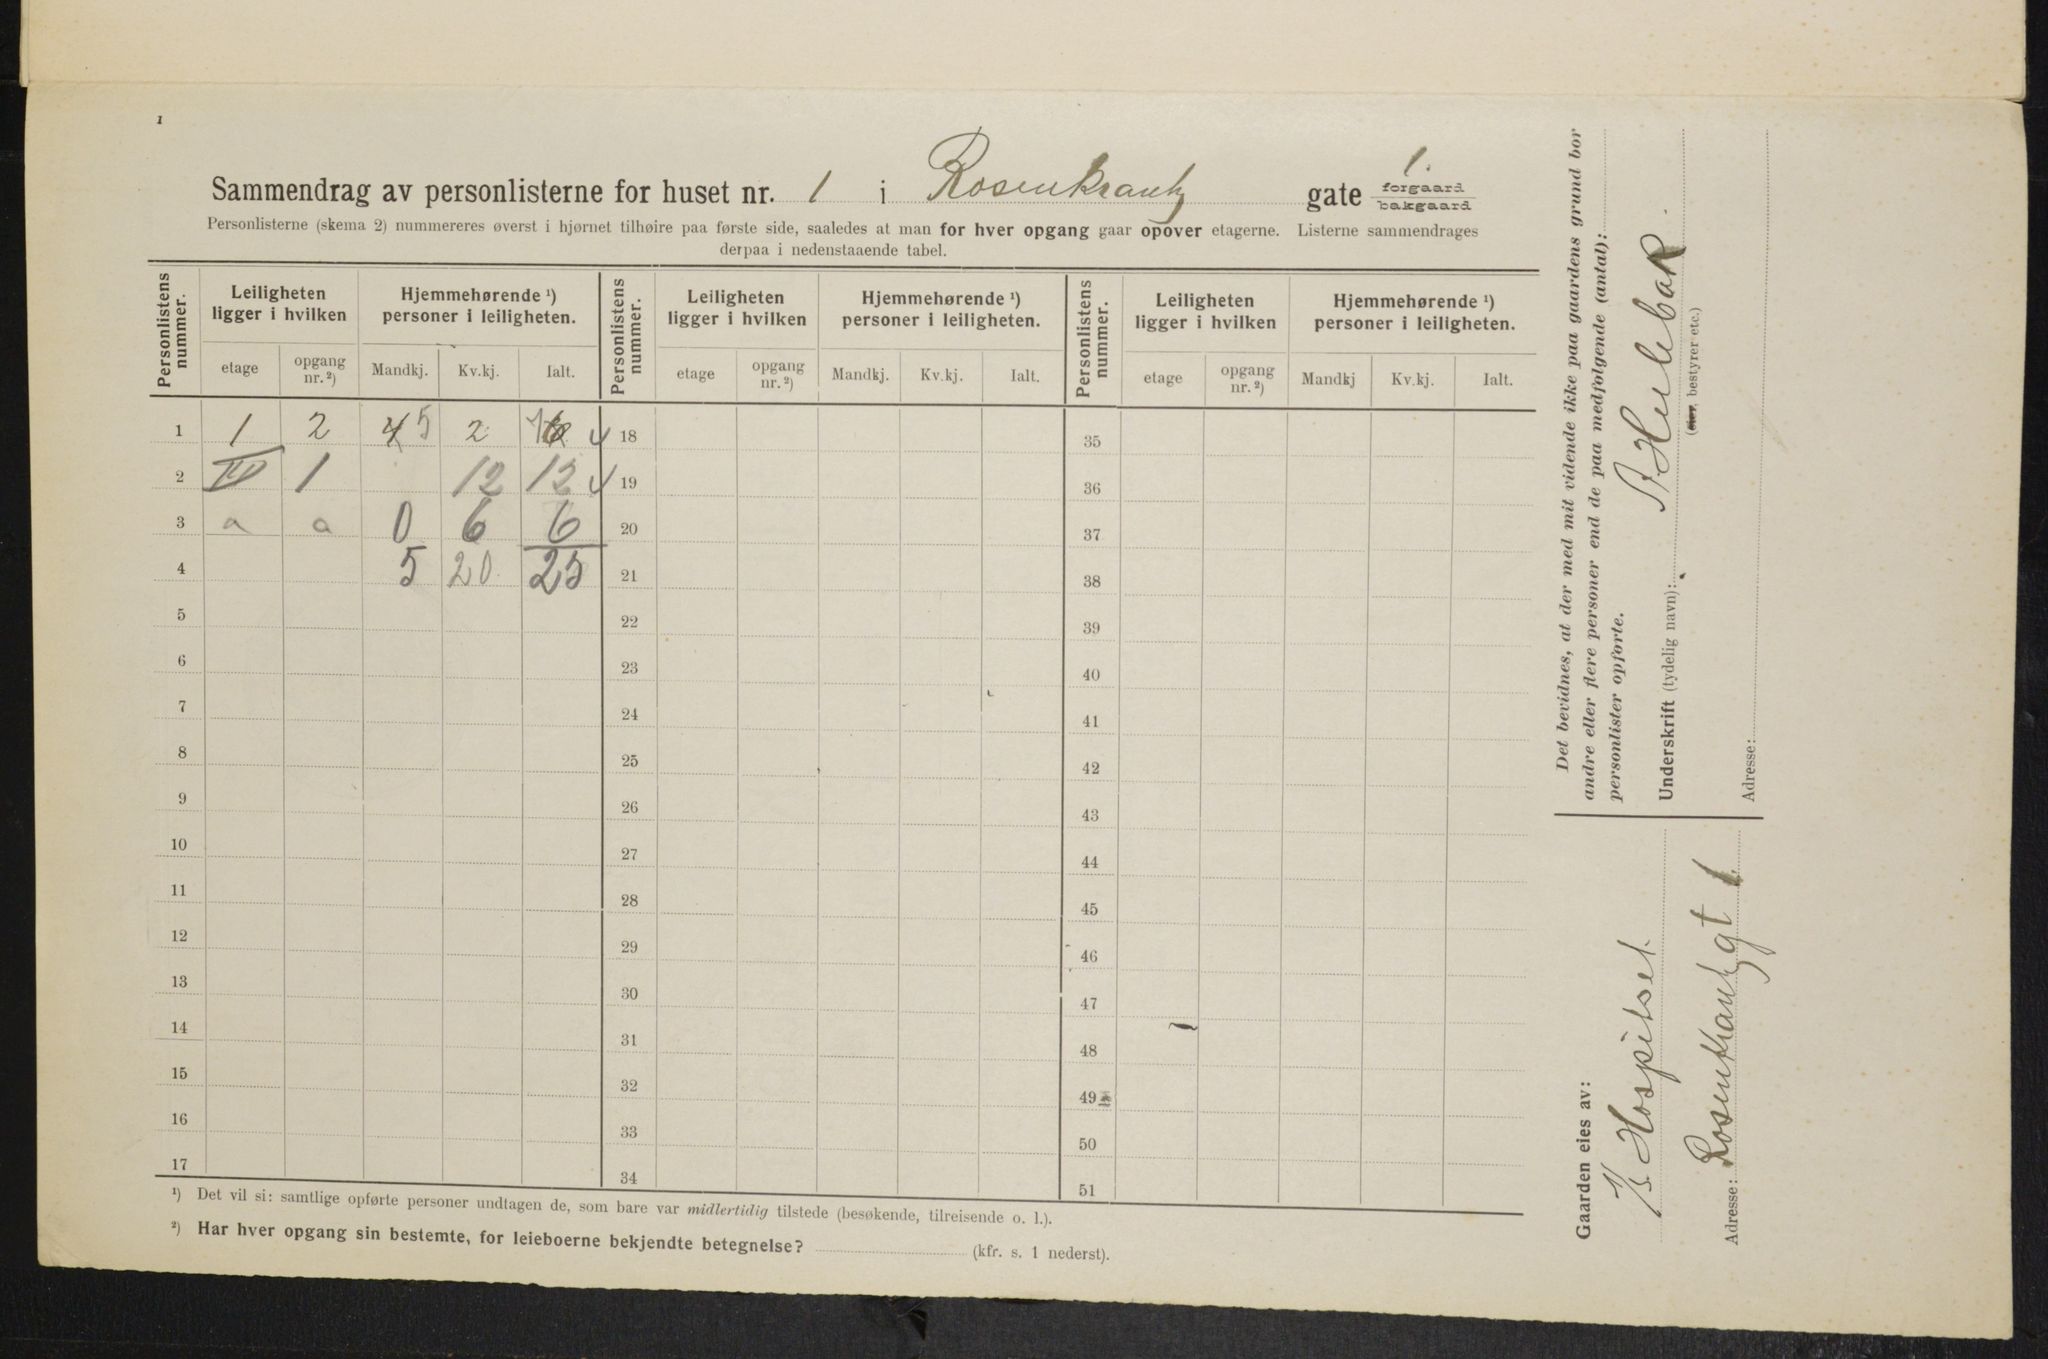 1
Sammendrag av personlisterne for huset nr. 1 i Rosenkrantz gate 1. forgaard bakgaard
Personlisterne (skema 2) nummereres øverst i hjørnet tilhøire paa første side, saaledes at man for hver opgang gaar opover etagerne. Listerne sammendrages
derpaa i nedenstaaende tabel.
Personlistens nummer. Leiligheten ligger i hvilken Hjemmehørende ¹) personer i leiligheten. Personlistens nummer. Leiligheten ligger i hvilken Hjemmehørende ¹) personer i leiligheten. Personlistens nummer. Leiligheten ligger i hvilken Hjemmehørende ¹) personer i leiligheten.
etage opgang nr. ²) Mandkj. Kv.kj. Ialt. etage opgang nr. ²) Mandkj. Kv.kj. Ialt. etage opgang nr. ²) Mandkj Kv.kj. Ialt.
1 1 2 4 5 2 6 18 35
2 1 12 12 19 36
3 a a 0 6 6 20 37
4 5 20 25 21 38
5 22 39
6 23 40
7 24 41
8 25 42
9 26 43
10 27 44
11 28 45
12 29 46
13 30 47
14 31 48
15 32 49
16 33 50
17 34 51
¹) Det vil si: samtlige opførte personer undtagen de, som bare var midlertidig tilstede (besøkende, tilreisende o. l.).
²) Har hver opgang sin bestemte, for leieboerne bekjendte betegnelse? (kfr. s. 1 nederst).
Det bevidnes, at der med mit vidende ikke paa gaardens grund bor
andre eller flere personer end de paa medfølgende (antal):
personlister opførte.
Underskrift (tydelig navn): Hulbak.
(eier, bestyrer etc.)
Adresse:
Gaarden eies av:
Hospitset.
Adresse: Rosenkrantzgt 1